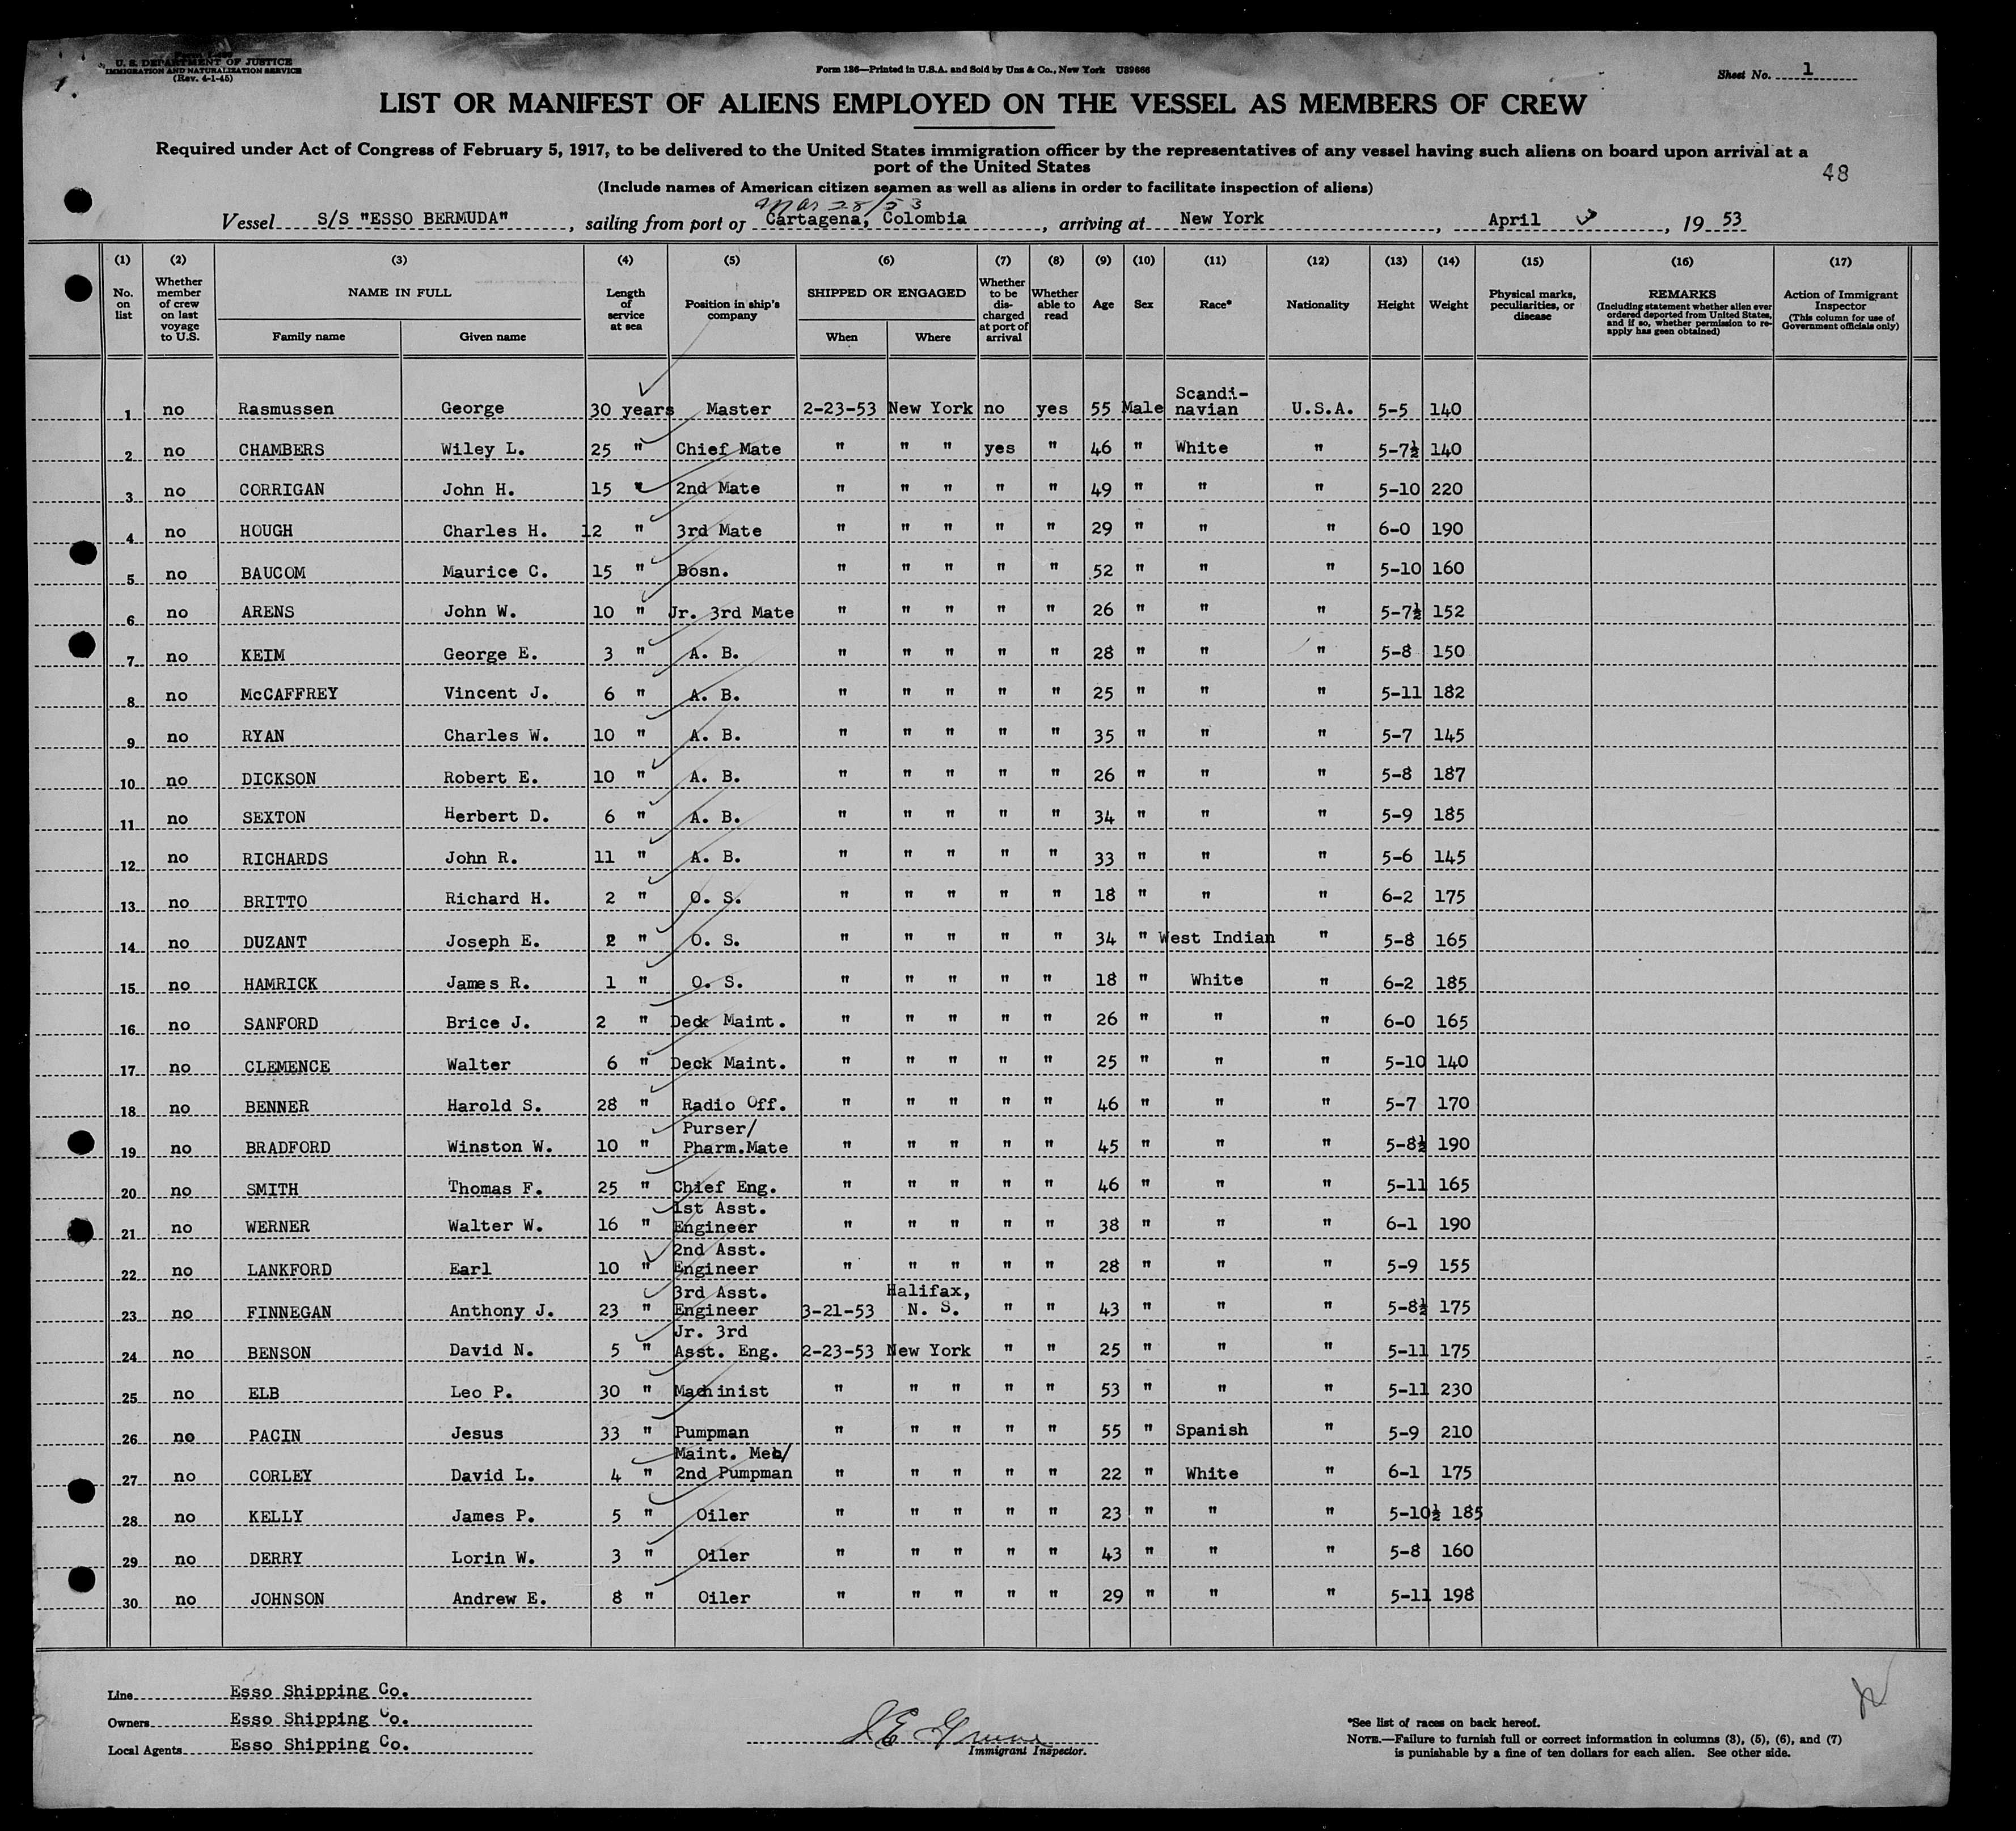 U. S. DEPARTMENT OF JUSTICE
IMMIGRATION AND NATURALIZATION SERVICE
(Rev. 4-1-45)
Form 186—Printed in U.S.A. and Sold by Unz & Co., New York U89666
Sheet No. 1
LIST OR MANIFEST OF ALIENS EMPLOYED ON THE VESSEL AS MEMBERS OF CREW
Required under Act of Congress of February 5, 1917, to be delivered to the United States immigration officer by the representatives of any vessel having such aliens on board upon arrival at a
port of the United States
48
(Include names of American citizen seamen as well as aliens in order to facilitate inspection of aliens)
Mar 28/53
Vessel S/S "ESSO BERMUDA", sailing from port of Cartagena, Colombia, arriving at New York, April, 19 53
(1) (2) (3) (4) (5) (6) (7) (8) (9) (10) (11) (12) (13) (14) (15) (16) (17)
No. on list
Whether member of crew on last voyage to U.S.
NAME IN FULL
Family name Given name
Length of service at sea
Position in ship's company
SHIPPED OR ENGAGED
When Where
Whether to be discharged at port of arrival
Whether able to read
Age
Sex
Race*
Nationality
Height
Weight
Physical marks, peculiarities, or disease
REMARKS
(Including statement whether alien ever ordered deported from United States, and if so, whether permission to re-apply has geen obtained)
Action of Immigrant Inspector
(This column for use of Government officials only)
1 no Rasmussen George 30 years Master 2-23-53 New York no yes 55 Male Scandi-navian U.S.A. 5-5 140
2 no CHAMBERS Wiley L. 25 " Chief Mate " " " yes " 46 " White " 5-7½ 140
3 no CORRIGAN John H. 15 " 2nd Mate " " " " " 49 " " " 5-10 220
4 no HOUGH Charles H. 12 " 3rd Mate " " " " " 29 " " " 6-0 190
5 no BAUCOM Maurice C. 15 " Bosn. " " " " " 52 " " " 5-10 160
6 no ARENS John W. 10 " Jr. 3rd Mate " " " " " 26 " " " 5-7½ 152
7 no KEIM George E. 3 " A. B. " " " " " 28 " " " 5-8 150
8 no McCAFFREY Vincent J. 6 " A. B. " " " " " 25 " " " 5-11 182
9 no RYAN Charles W. 10 " A. B. " " " " " 35 " " " 5-7 145
10 no DICKSON Robert E. 10 " A. B. " " " " " 26 " " " 5-8 187
11 no SEXTON Herbert D. 6 " A. B. " " " " " 34 " " " 5-9 185
12 no RICHARDS John R. 11 " A. B. " " " " " 33 " " " 5-6 145
13 no BRITTO Richard H. 2 " O. S. " " " " " 18 " " " 6-2 175
14 no DUZANT Joseph E. 2 " O. S. " " " " " 34 " West Indian " 5-8 165
15 no HAMRICK James R. 1 " O. S. " " " " " 18 " White " 6-2 185
16 no SANFORD Brice J. 2 " Deck Maint. " " " " " 26 " " " 6-0 165
17 no CLEMENCE Walter 6 " Deck Maint. " " " " " 25 " " " 5-10 140
18 no BENNER Harold S. 28 " Radio Off. " " " " " 46 " " " 5-7 170
19 no BRADFORD Winston W. 10 " Purser/ Pharm.Mate " " " " " 45 " " " 5-8½ 190
20 no SMITH Thomas F. 25 " Chief Eng. " " " " " 46 " " " 5-11 165
21 no WERNER Walter W. 16 " 1st Asst. Engineer " " " " " 38 " " " 6-1 190
22 no LANKFORD Earl 10 " 2nd Asst. Engineer " " " " " 28 " " " 5-9 155
23 no FINNEGAN Anthony J. 23 " 3rd Asst. Engineer 3-21-53 Halifax, N. S. " " 43 " " " 5-8½ 175
24 no BENSON David N. 5 " Jr. 3rd Asst. Eng. 2-23-53 New York " " 25 " " " 5-11 175
25 no ELB Leo P. 30 " Machinist " " " " " 53 " " " 5-11 230
26 no PACIN Jesus 33 " Pumpman " " " " " 55 " Spanish " 5-9 210
27 no CORLEY David L. 4 " Maint. Mec/ 2nd Pumpman " " " " " 22 " White " 6-1 175
28 no KELLY James P. 5 " Oiler " " " " " 23 " " " 5-10½ 185
29 no DERRY Lorin W. 3 " Oiler " " " " " 43 " " " 5-8 160
30 no JOHNSON Andrew E. 8 " Oiler " " " " " 29 " " " 5-11 198
Line Esso Shipping Co.
Owners Esso Shipping Co.
Local Agents Esso Shipping Co.
Immigrant Inspector.
*See list of races on back hereof.
NOTE.—Failure to furnish full or correct information in columns (3), (5), (6), and (7)
is punishable by a fine of ten dollars for each alien. See other side.